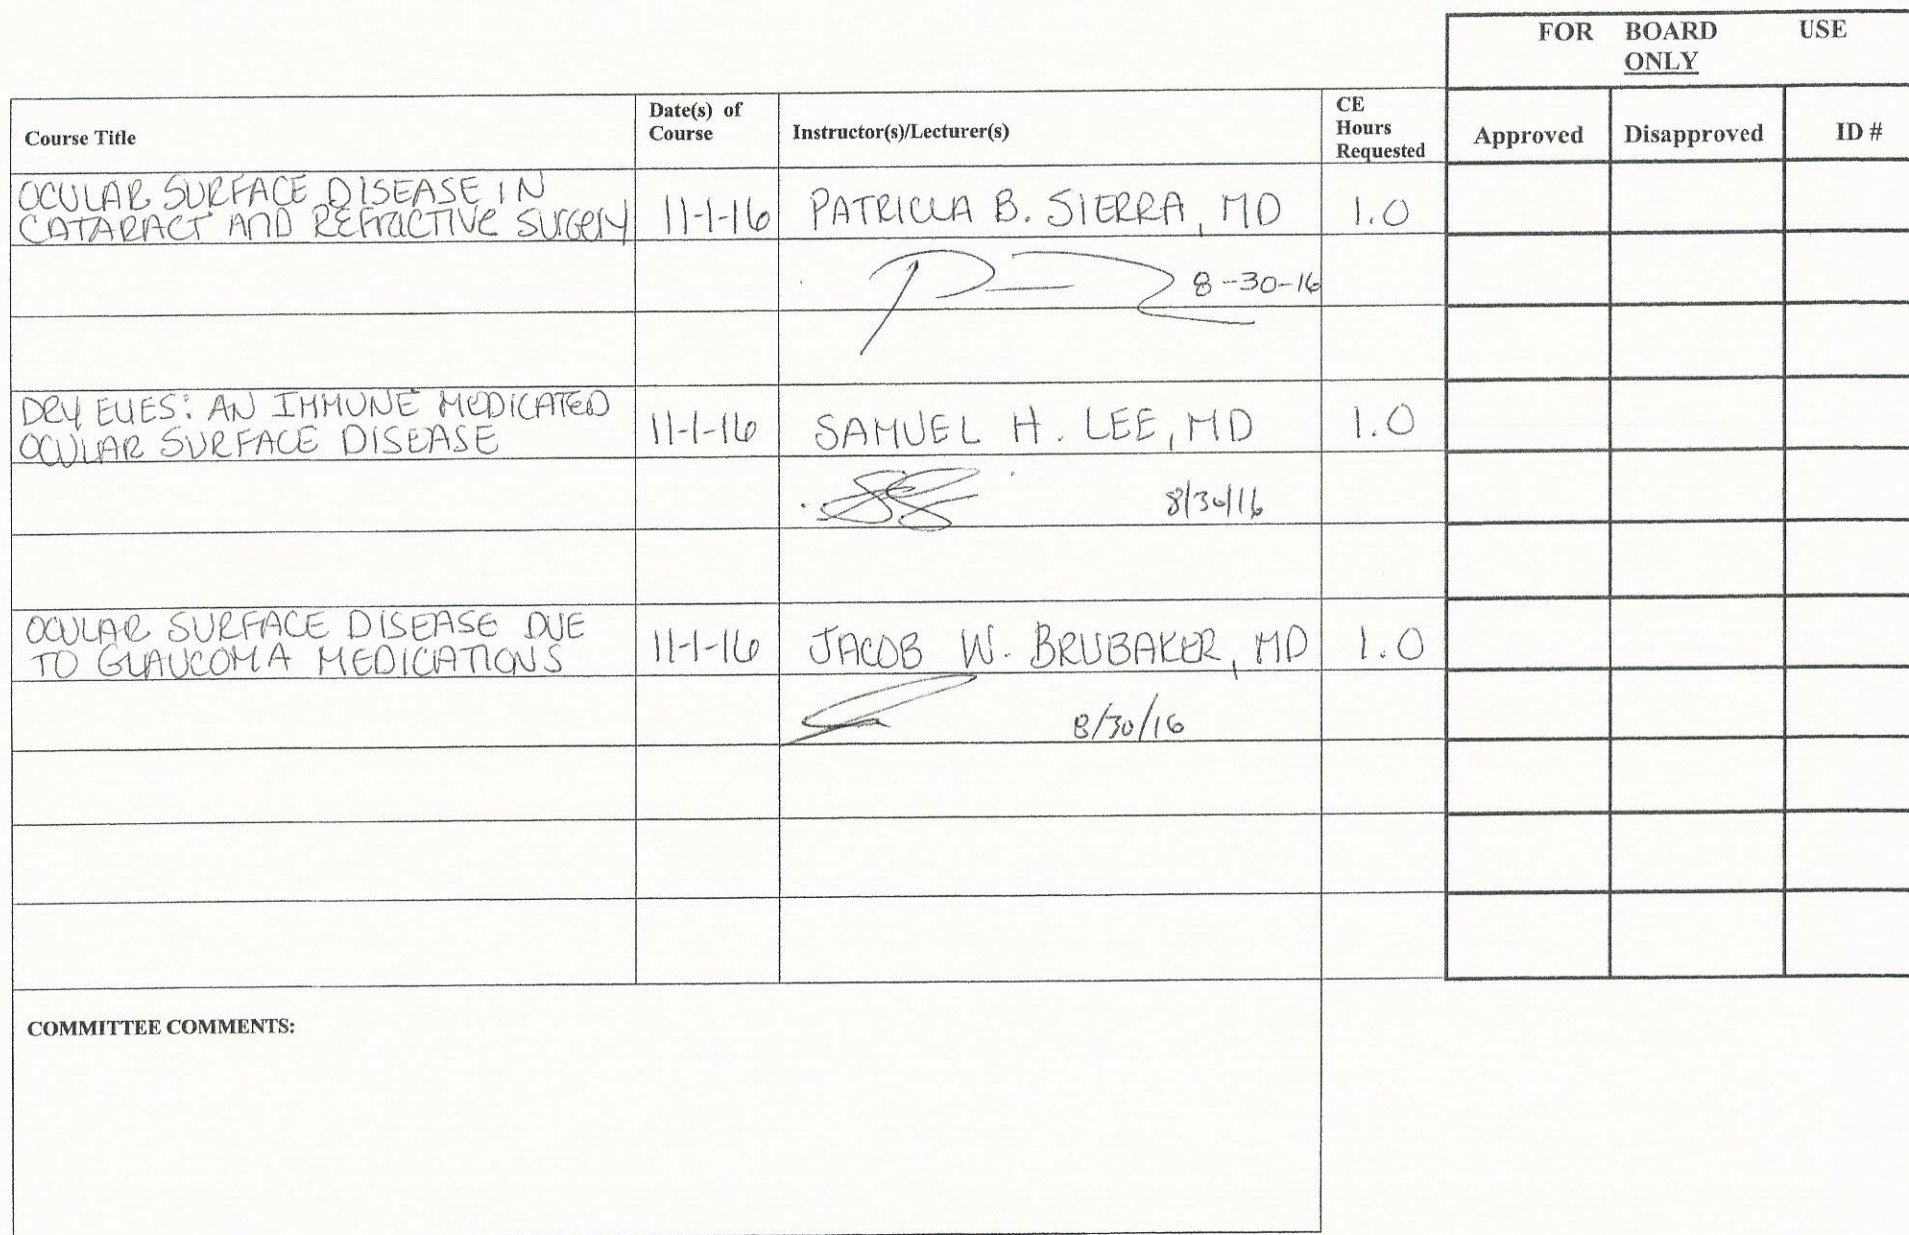 FOR BOARD USE
ONLY
Course Title
Date(s) of
Course
Instructor(s)/Lecturer(s)
CE
Hours
Requested
Approved
Disapproved
ID #
OCULAR SURFACE DISEASE IN
CATARACT AND REFRACTIVE SURGERY
11-1-16
PATRICIA B. SIERRA, MD
1.0
8-30-16
DRY EYES: AN IMMUNE MEDICATED
OCULAR SURFACE DISEASE
11-1-16
SAMUEL H. LEE, MD
1.0
8/30/16
OCULAR SURFACE DISEASE DUE
TO GLAUCOMA MEDICATIONS
11-1-16
JACOB W. BRUBAKER, MD
1.0
8/30/16
COMMITTEE COMMENTS: